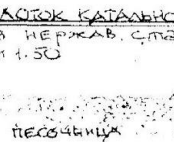 ЛОТОК КАТАЛЬНО
НЕРЖАВ. СТА
1.50
ПЕСОЧНИЦА